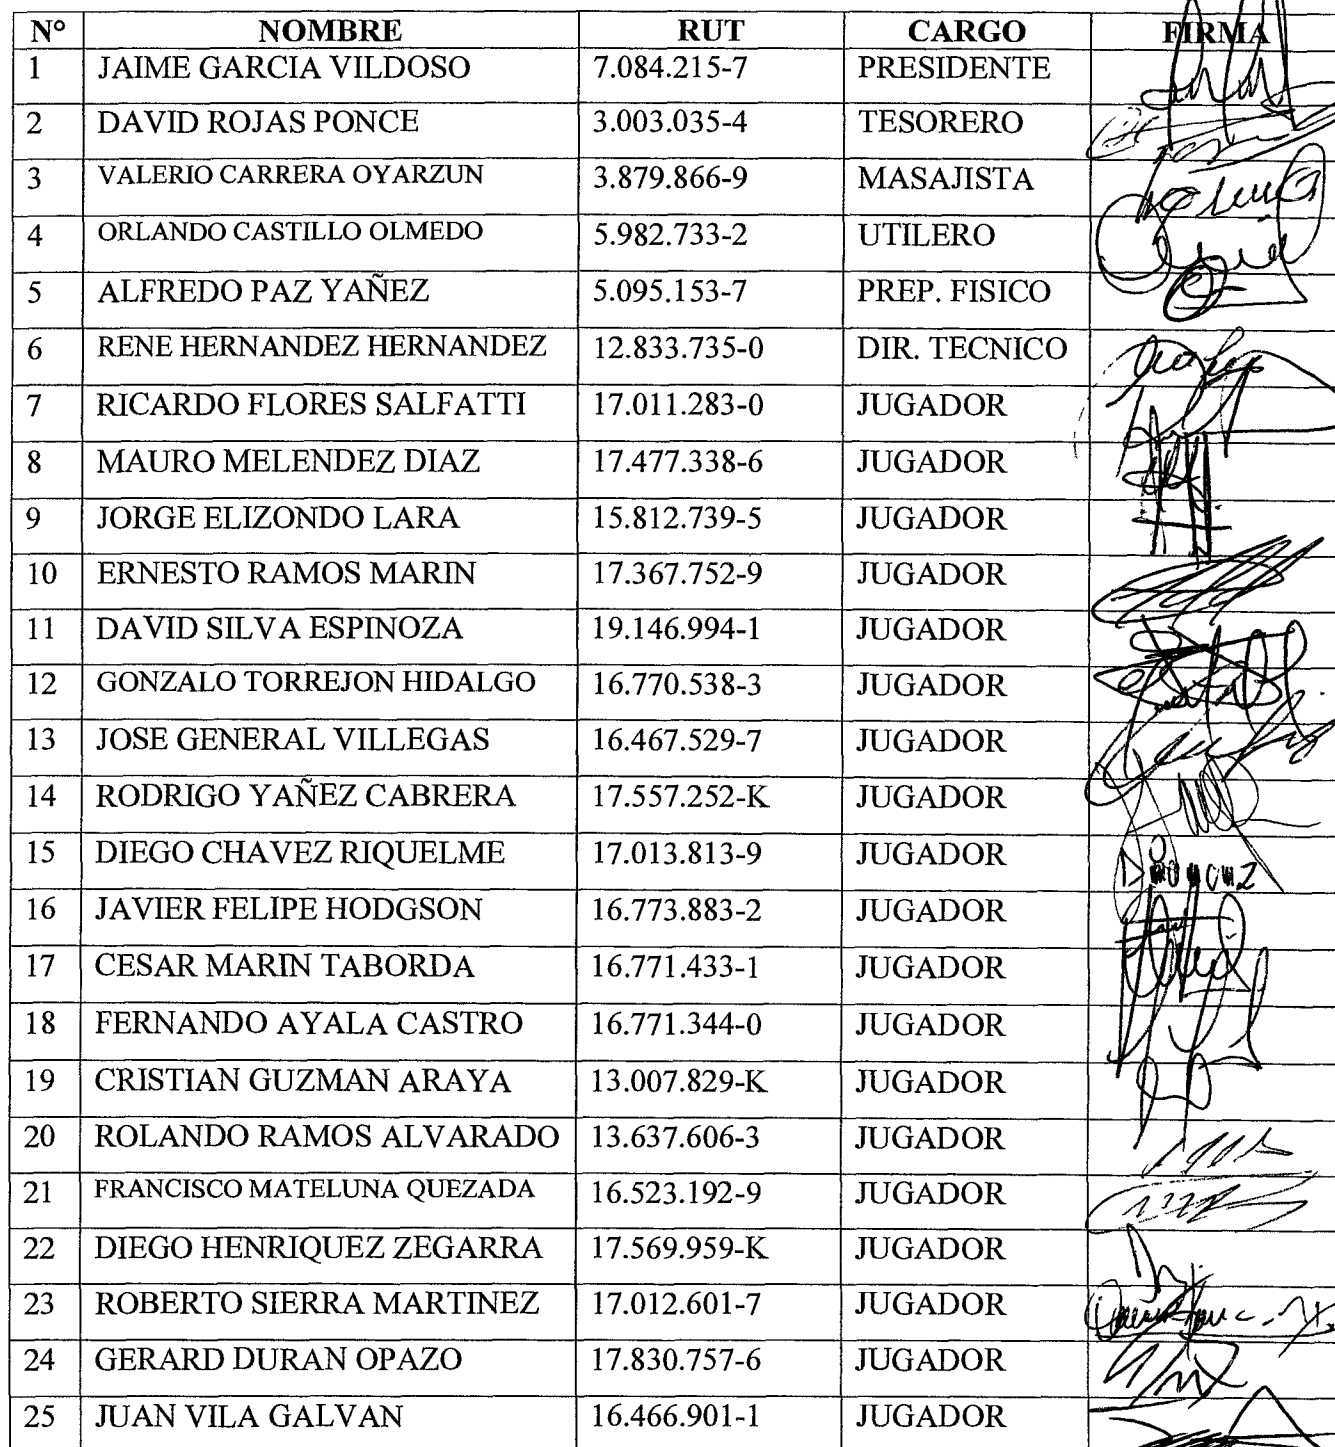 N° NOMBRE RUT CARGO FIRMA
1 JAIME GARCIA VILDOSO 7.084.215-7 PRESIDENTE
2 DAVID ROJAS PONCE 3.003.035-4 TESORERO
3 VALERIO CARRERA OYARZUN 3.879.866-9 MASAJISTA
4 ORLANDO CASTILLO OLMEDO 5.982.733-2 UTILERO
5 ALFREDO PAZ YAÑEZ 5.095.153-7 PREP. FISICO
6 RENE HERNANDEZ HERNANDEZ 12.833.735-0 DIR. TECNICO
7 RICARDO FLORES SALFATTI 17.011.283-0 JUGADOR
8 MAURO MELENDEZ DIAZ 17.477.338-6 JUGADOR
9 JORGE ELIZONDO LARA 15.812.739-5 JUGADOR
10 ERNESTO RAMOS MARIN 17.367.752-9 JUGADOR
11 DAVID SILVA ESPINOZA 19.146.994-1 JUGADOR
12 GONZALO TORREJON HIDALGO 16.770.538-3 JUGADOR
13 JOSE GENERAL VILLEGAS 16.467.529-7 JUGADOR
14 RODRIGO YAÑEZ CABRERA 17.557.252-K JUGADOR
15 DIEGO CHAVEZ RIQUELME 17.013.813-9 JUGADOR
16 JAVIER FELIPE HODGSON 16.773.883-2 JUGADOR
17 CESAR MARIN TABORDA 16.771.433-1 JUGADOR
18 FERNANDO AYALA CASTRO 16.771.344-0 JUGADOR
19 CRISTIAN GUZMAN ARAYA 13.007.829-K JUGADOR
20 ROLANDO RAMOS ALVARADO 13.637.606-3 JUGADOR
21 FRANCISCO MATELUNA QUEZADA 16.523.192-9 JUGADOR
22 DIEGO HENRIQUEZ ZEGARRA 17.569.959-K JUGADOR
23 ROBERTO SIERRA MARTINEZ 17.012.601-7 JUGADOR
24 GERARD DURAN OPAZO 17.830.757-6 JUGADOR
25 JUAN VILA GALVAN 16.466.901-1 JUGADOR